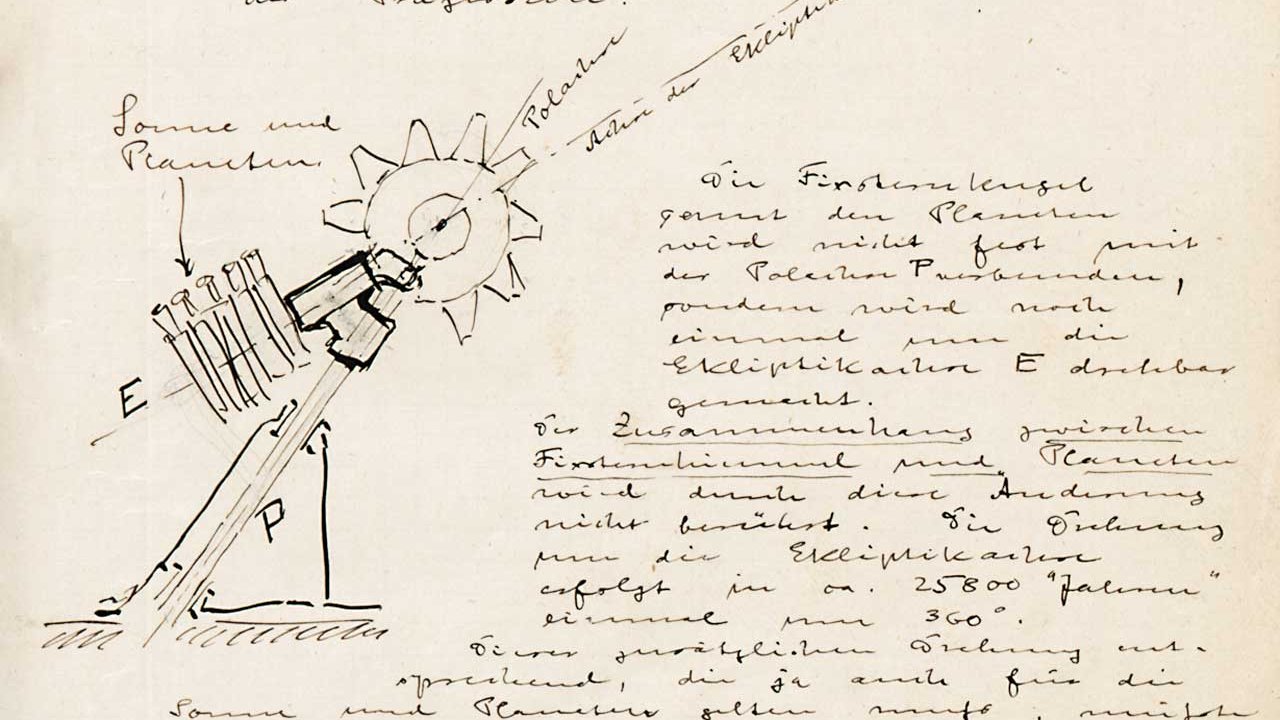 der Präzession.
Polachse
Achse der Ekliptik
Sonne und
Planeten
Die Fixsternkugel
gesamt den Planeten
wird nicht fest mit
der Polachse P verbunden,
sondern wird noch
einmal um die
Ekliptikachse E drehbar
gemacht.
E
Der Zusammenhang zwischen
Fixsternhimmel und Planeten
wird durch diese Änderung
nicht berührt. Die Drehung
P
um die Ekliptikachse
erfolgt in ca. 25800 "Jahren"
einmal um 360°.
Dieser zusätzlichen Drehung ent-
sprechend, die ja auch für die
Sonne und Planeten gelten muß, müßte